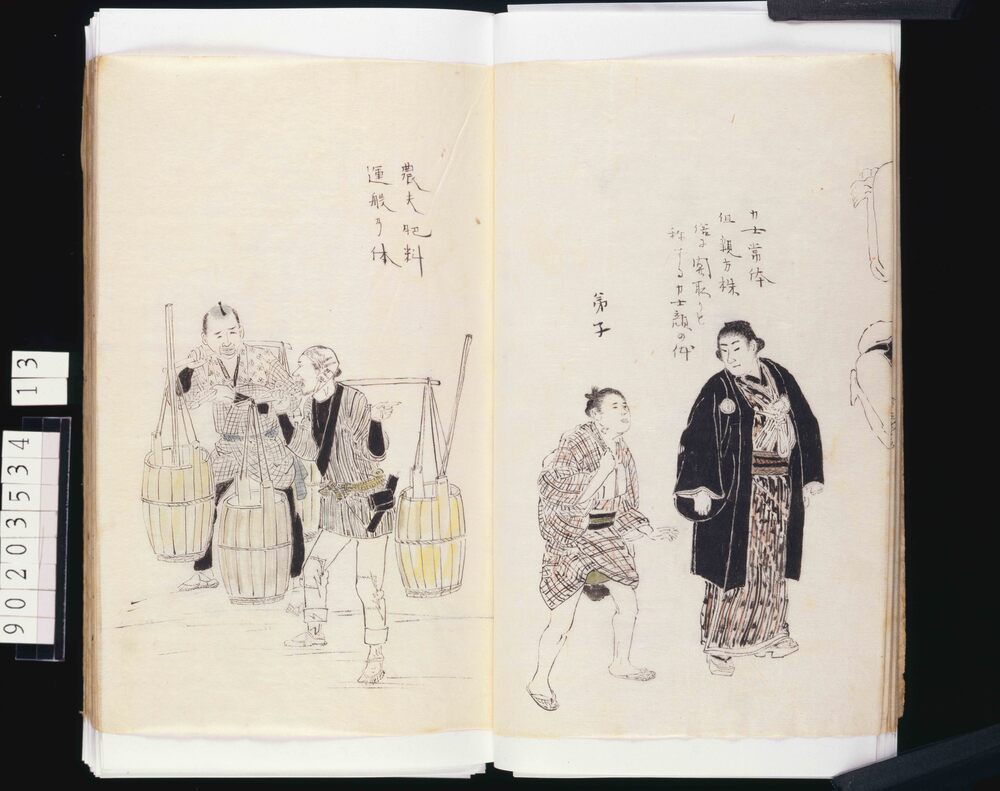 力士常体
但親方株
俗に関取りと
称する力士顔の体
弟子
農夫肥料
運般ノ体
13
90203534